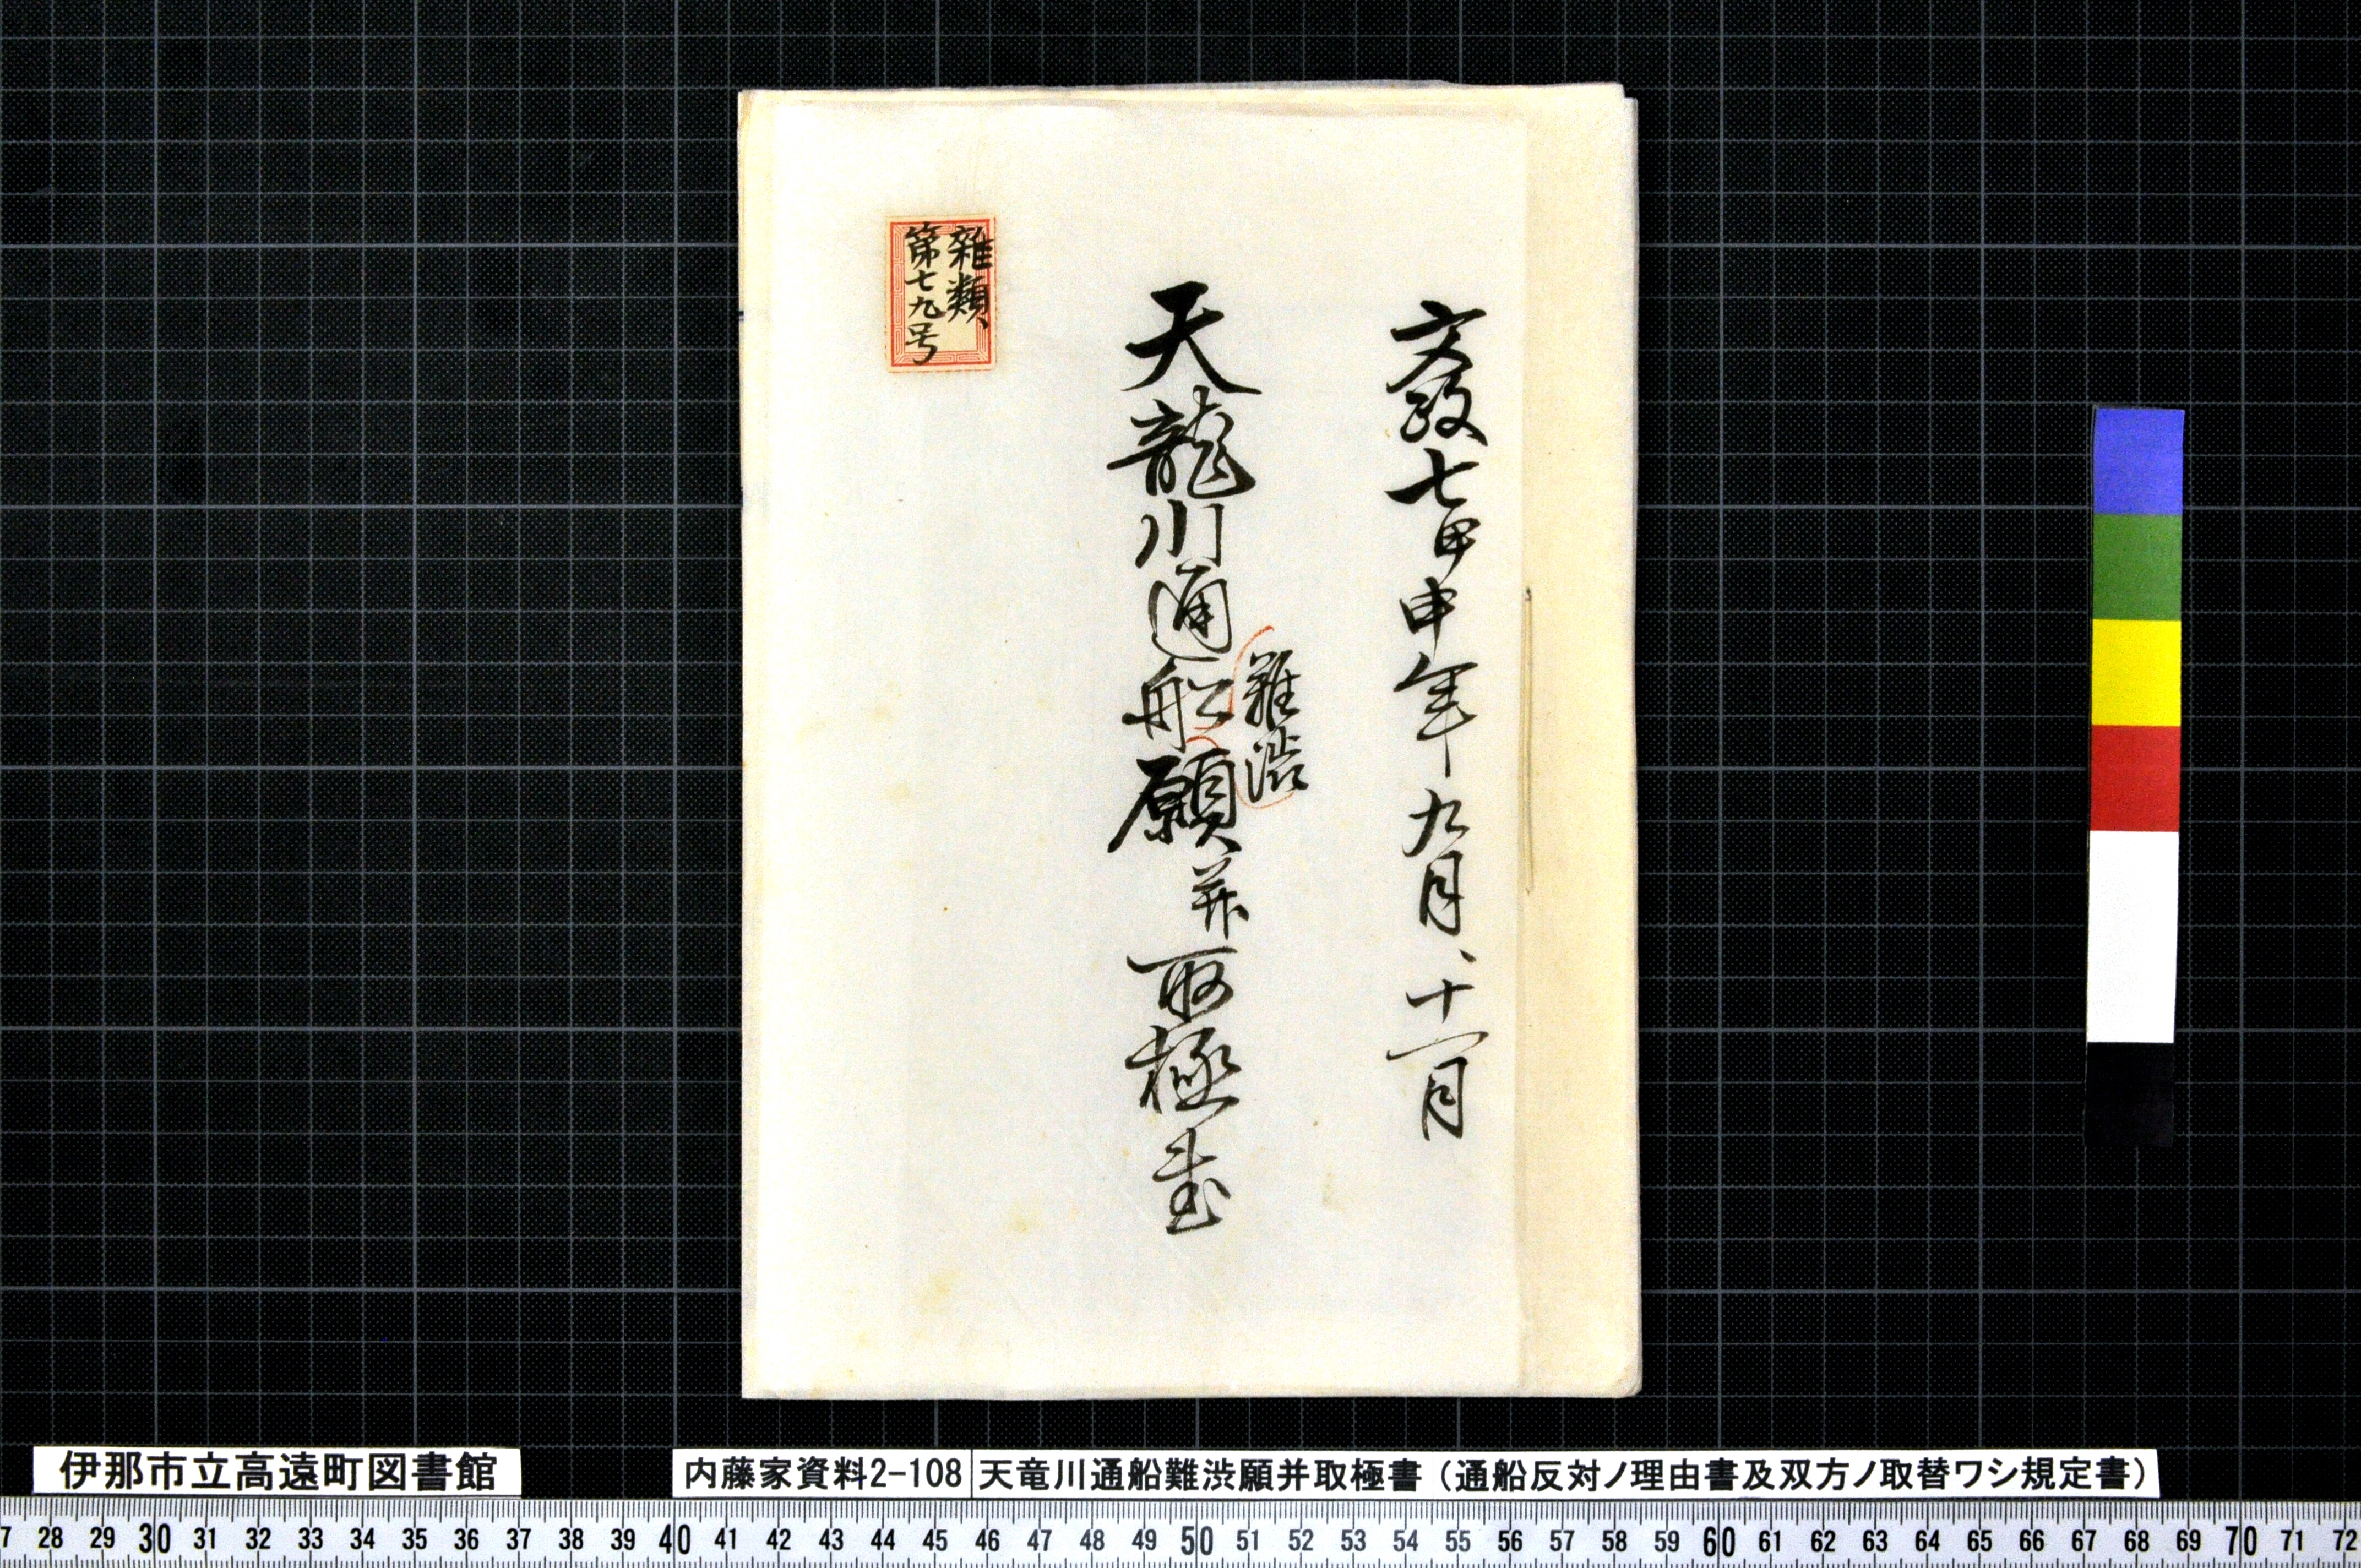 文政七甲申年九月、十一月
難渋
天龍川通船願并取極書
雑類、
第七九号
伊那市立高遠町図書館
内藤家資料2-108
天竜川通船難渋願并取極書（通船反対ノ理由書及双方ノ取替ワシ規定書）
7 28 29 30 31 32 33 34 35 36 37 38 39 40 41 42 43 44 45 46 47 48 49 50 51 52 53 54 55 56 57 58 59 60 61 62 63 64 65 66 67 68 69 70 71 72